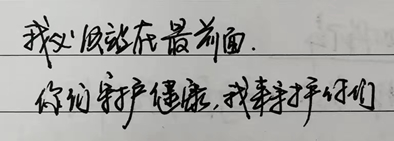 我必须站在最前面.
你们守护健康,我来守护你们